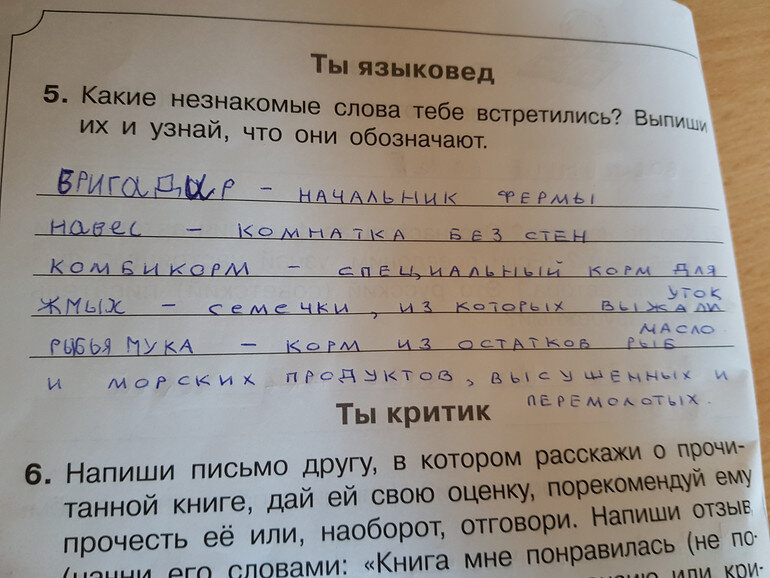 Ты языковед
5. Какие незнакомые слова тебе встретились? Выпиши
их и узнай, что они обозначают.
БРИГАДИР - НАЧАЛЬНИК ФЕРМЫ
НАВЕС - КОМНАТКА БЕЗ СТЕН
КОМБИКОРМ - СПЕЦИАЛЬНЫЙ КОРМ ДЛЯ
УТОК
ЖМЫХ - СЕМЕЧКИ, ИЗ КОТОРЫХ ВЫЖАЛИ
МАСЛО
РЫБЬЯ МУКА - КОРМ ИЗ ОСТАТКОВ РЫБ
И МОРСКИХ ПРОДУКТОВ, ВЫСУШЕННЫХ И
ПЕРЕМОЛОТЫХ.
Ты критик
6. Напиши письмо другу, в котором расскажи о прочи-
танной книге, дай ей свою оценку, порекомендуй ему
прочесть её или, наоборот, отговори. Напиши отзыв
(начни его словами: «Книга мне понравилась (не по-
или кри-